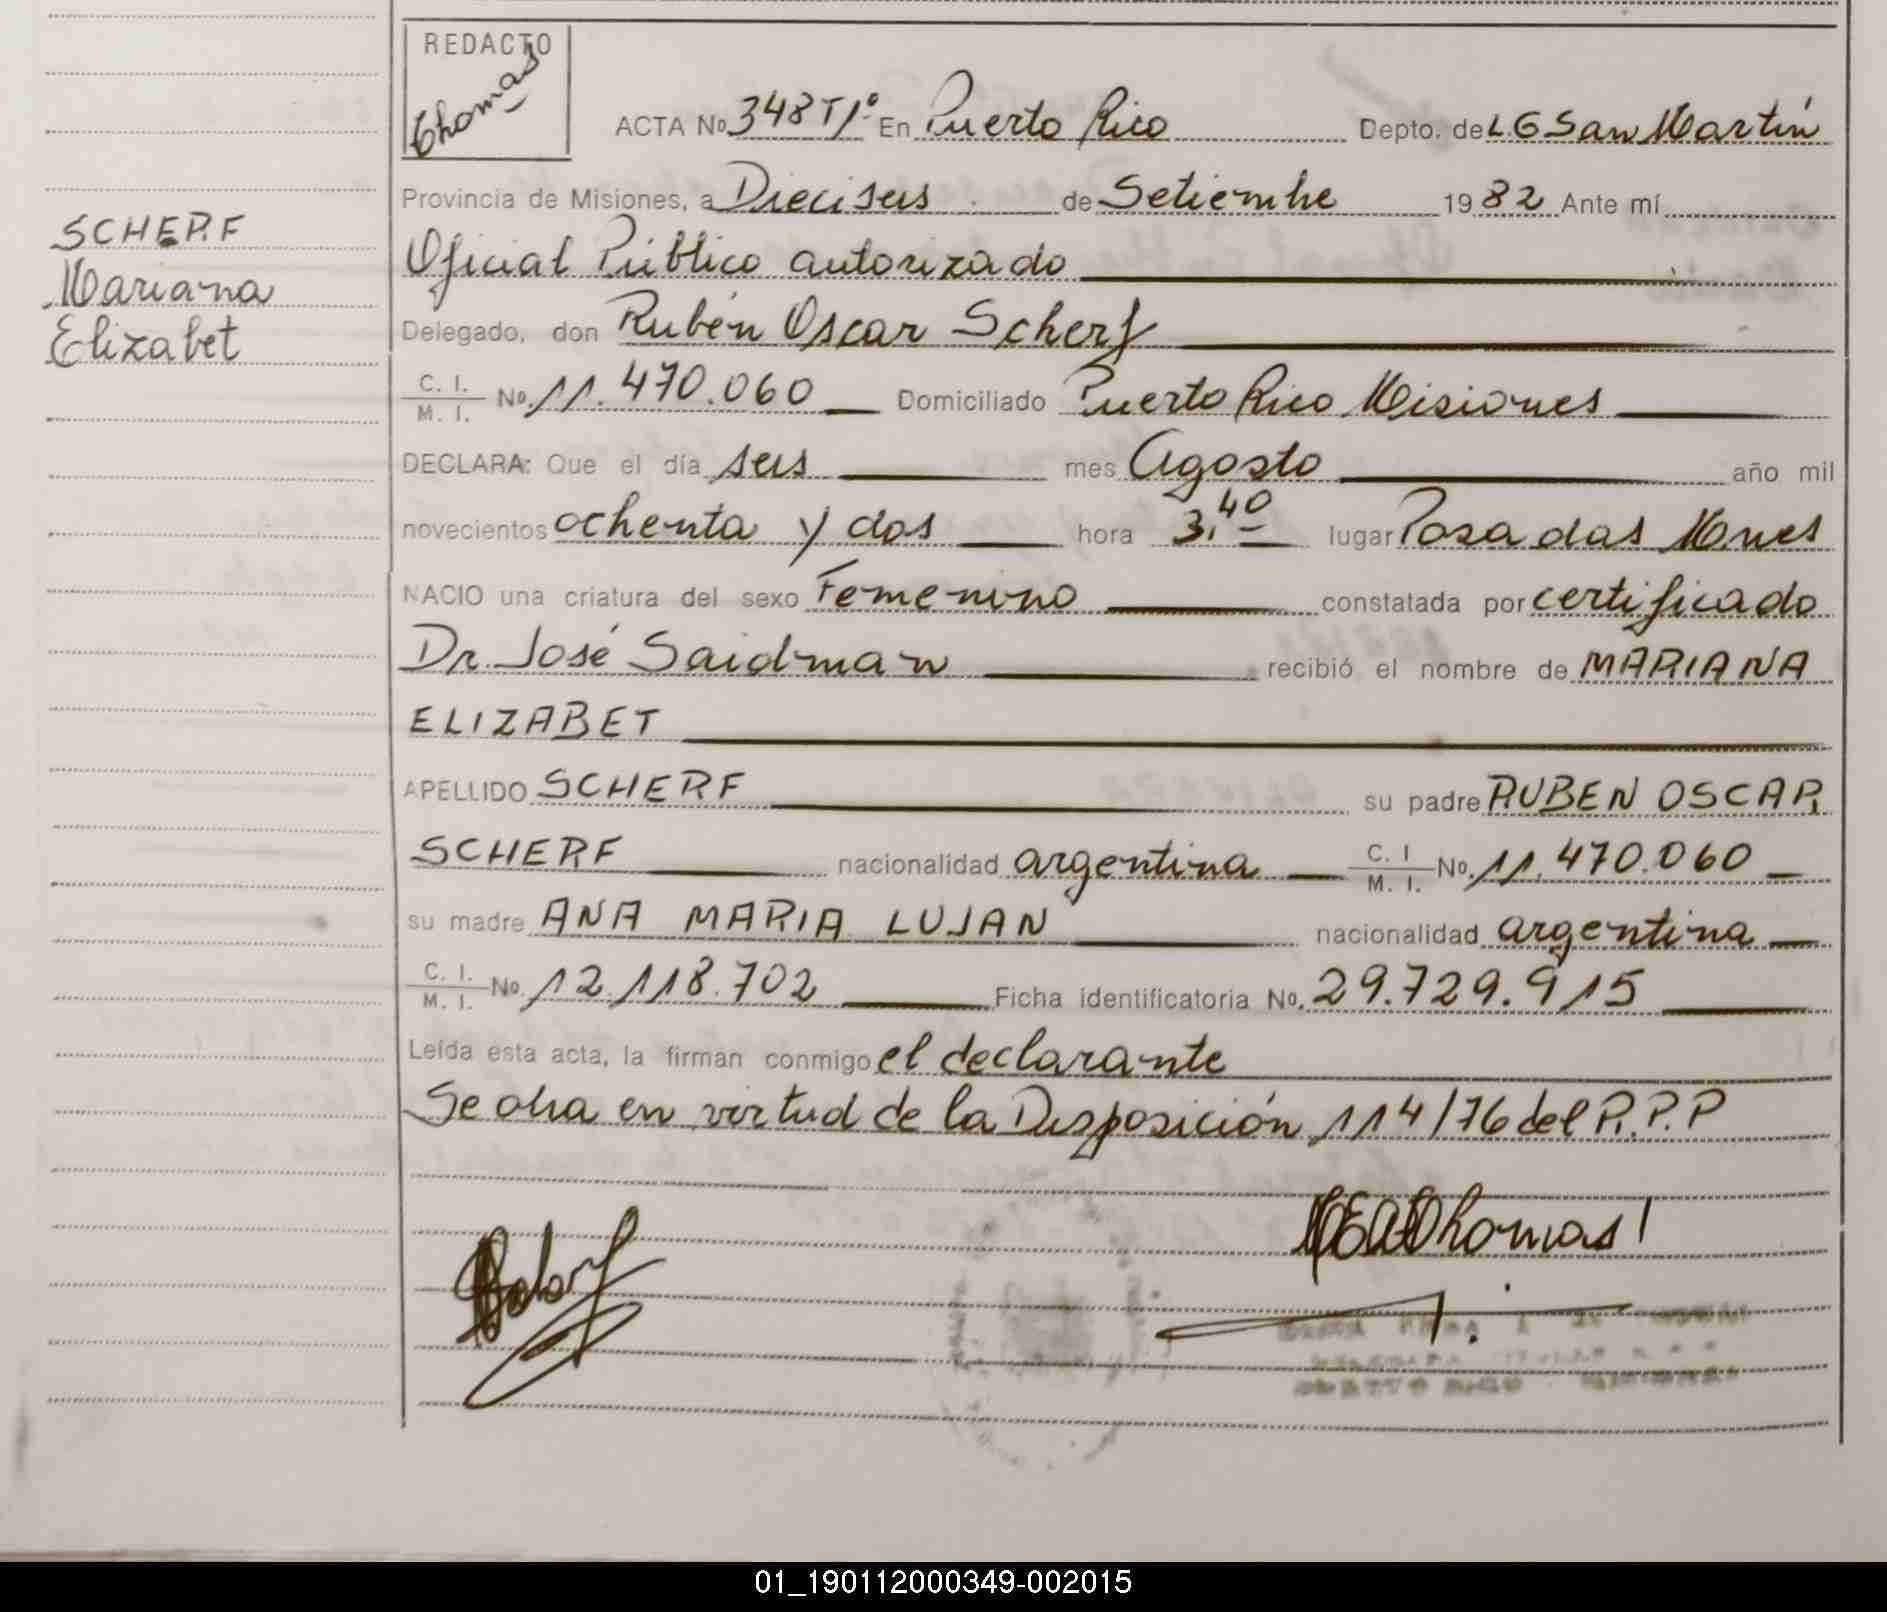 REDACTO
Thomas
ACTA No 348 T1º En Puerto Rico Depto. de L.G San Martín
Provincia de Misiones, a Dieciseis de Setiembre 1982 Ante mí
SCHERF
Mariana
Elizabet
Oficial Público autorizado
Delegado, don Rubén Oscar Scherf
C. I. / M. I. No. 11.470.060 Domiciliado Puerto Rico Misiones
DECLARA: Que el día seis mes Agosto año mil
novecientos ochenta y dos hora 3,40 lugar Posadas Mnes
NACIO una criatura del sexo Femenino constatada por certificado
Dr. José Saidman recibió el nombre de MARIANA
ELIZABET
APELLIDO SCHERF su padre RUBEN OSCAR
SCHERF nacionalidad argentina C. I / M. I. No. 11.470.060
su madre ANA MARIA LUJAN nacionalidad argentina
C. I. / M. I. No. 12.118.702 Ficha identificatoria No. 29.729.915
Leída esta acta, la firman conmigo el declarante
Se obra en virtud de la Disposición 114/76 del R.P.P
Thomas
01_190112000349-002015